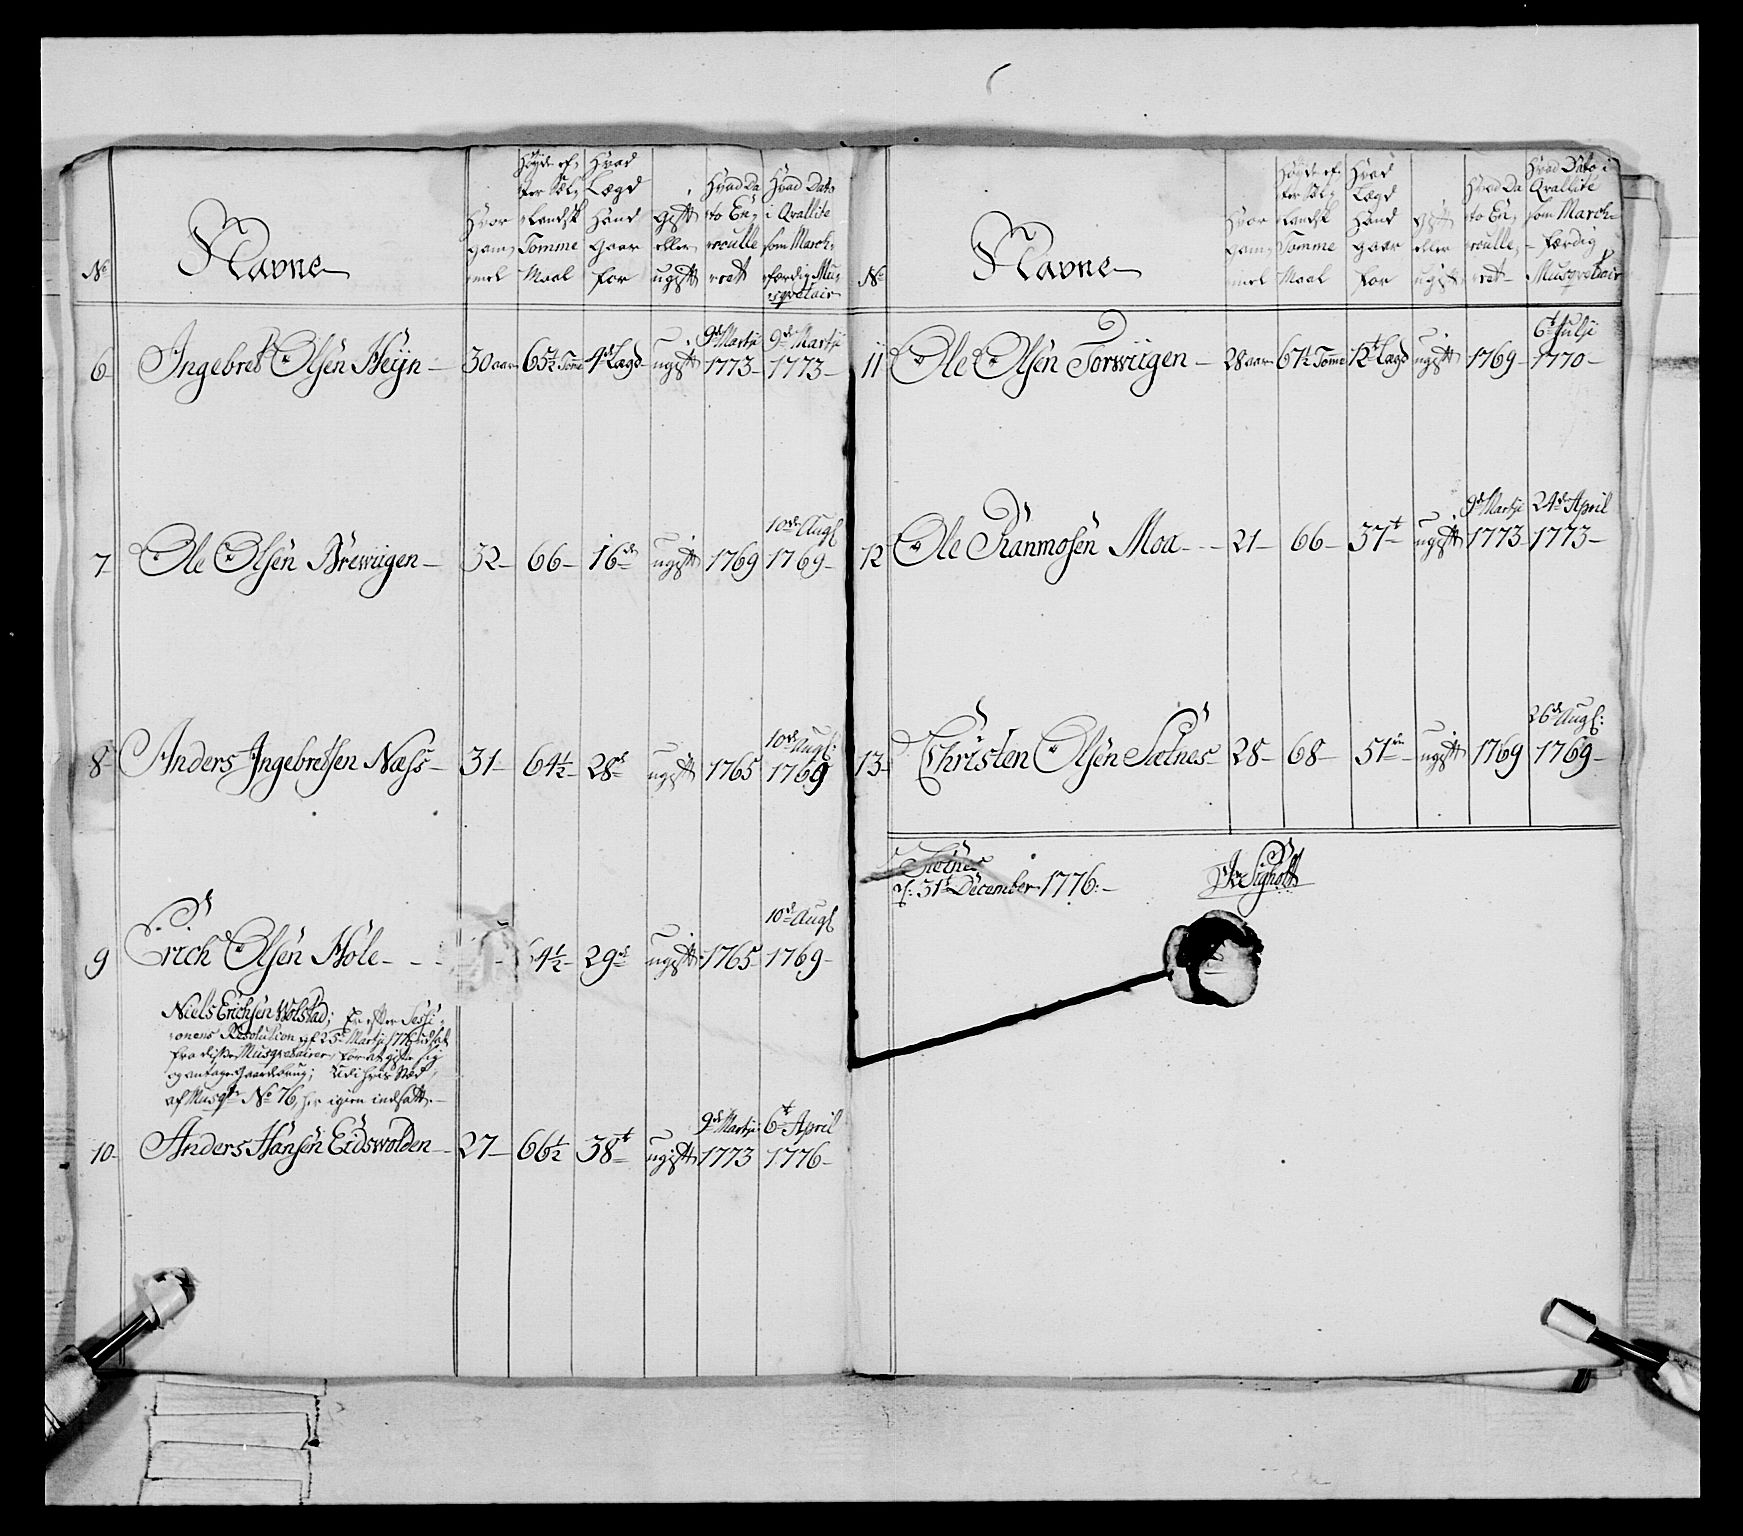 No
Navne
Hvor
gam¸
mel
Høyde ef¸
ter Sæl¸
landsk
Tomme
Maal
Hvad
Lægd
Hånd
Gaar
for
gift
eller
ugift
Hvad Da
to En¸
roulle
ret
Hvad Dato
i Qvallite
som March¸
færdig Mu¸
sqvetair
6 Ingebret Olsen Heijn 30 aar 65½ Tome 4de Lægd ugift 9de Martji 1773 9de Martji 1773
7 Ole Olsen Brewiigen 32 66 16de ugift 1769 10de Augl 1769
8 Anders Ingebretsen Næss 31 64½ 28de ugift 1765 10de Augl: 1769
9 Erich Olsen Hole 64½ 29de ugift 1765 10de Augl 1769
Niels Erichsen Wolstad; Er efter Sessi¸
onens Resolution af 25de Martji 1776 udsat
fra disse Musqvetairer, for at gifte sig
og antage Gaardbrug; Udi hvis Stæd
af Musqtr No 76, her igien indsatt.
10 Anders Hansen Eidswolden 27 66½ 38te ugift 9de Martji 1773 6te April 1776
No
Navne
Hvor
gam¸
mel
Høyde ef¸
ter Sæl¸
landsk
Tomme
Maal
Hvad
Lægd
Hånd
gaar
for
gift
eller
ugift
Hvad Da
to En¸
roulle¸
ret
Hvad Dato i
Qvallite
som March¸
færdig
Musqvetair
11 Ole Olsen Torwiigen 28 aar 67½ Tome 12te Lægd ugift 1769 6te Julji 1770
12 Ole Rånmosen Moa 21 66 37te ugift 9de Martji 1773 24de April 1773
13 Christen Olsen Sætnes 28 68 51de ugift 1769 26de Augl: 1769
Sætnes
d: 31te December 1776.